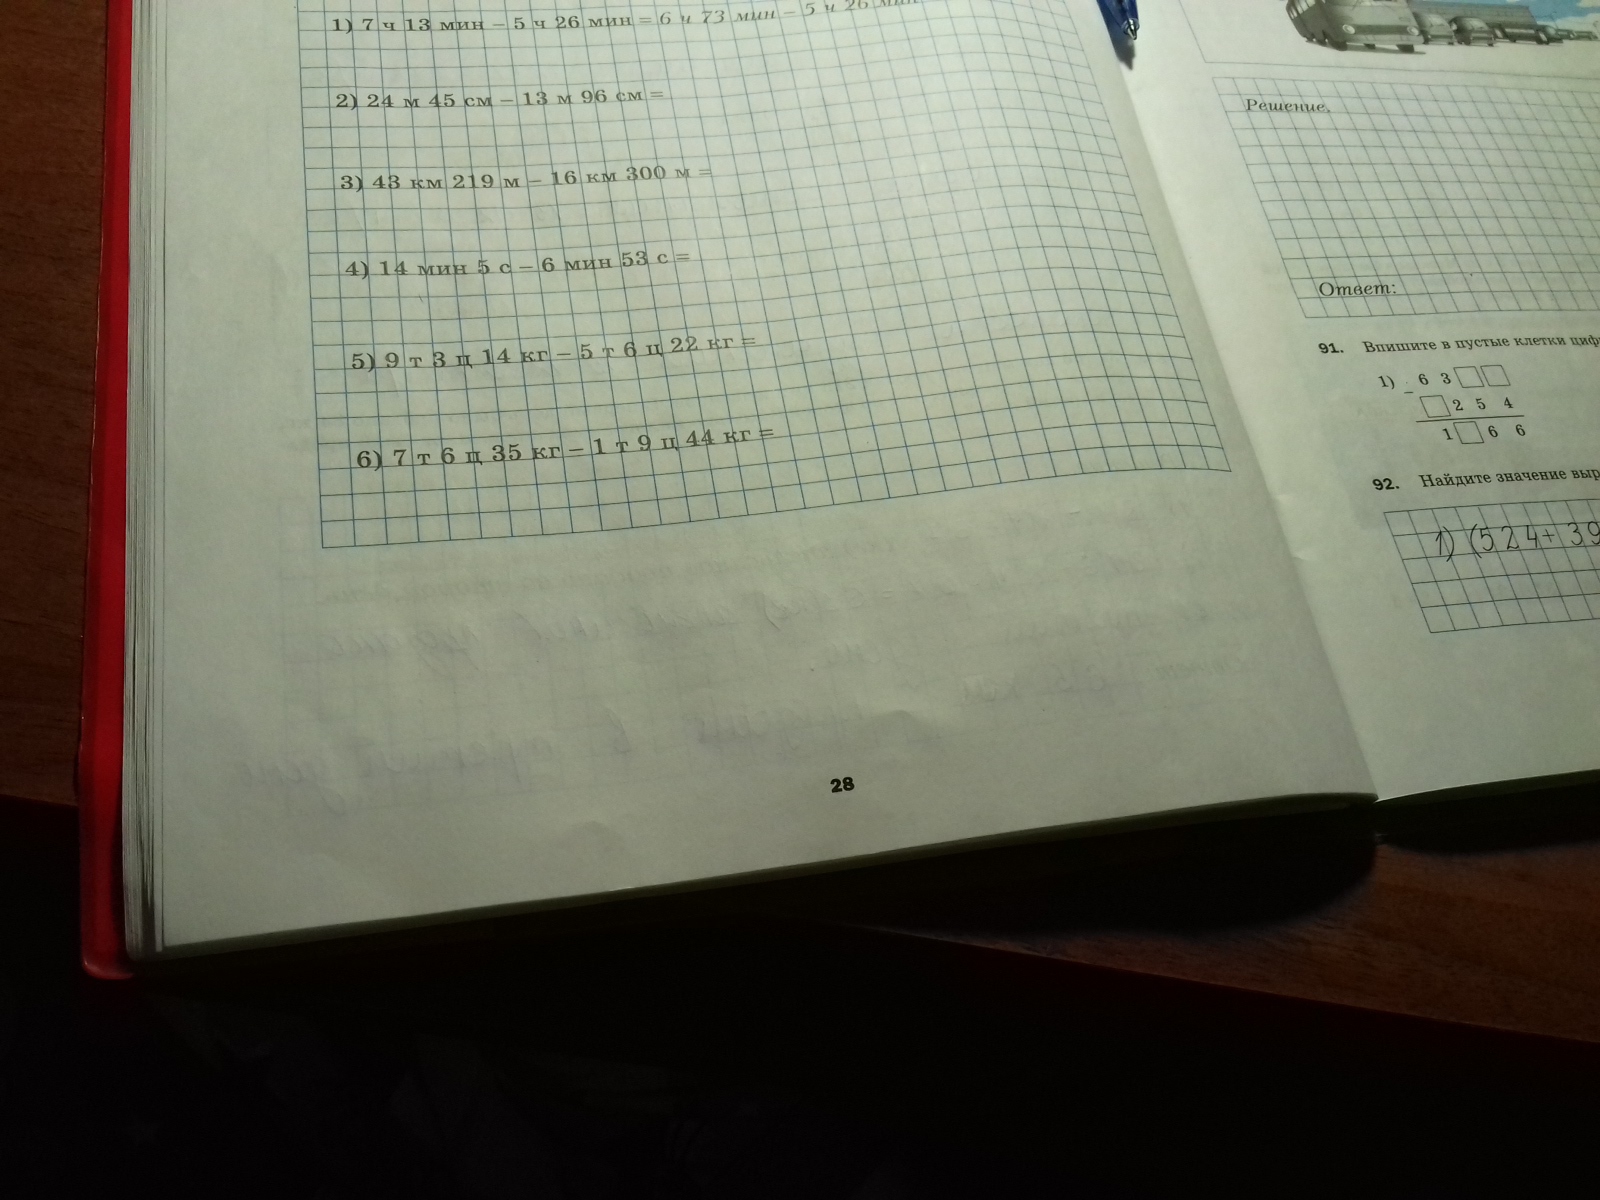 1) 7 ч 13 мин − 5 ч 26 мин = 6 ч 73 мин − 5 ч 26 мин
2) 24 м 45 см − 13 м 96 см =
3) 43 км 219 м − 16 км 300 м =
4) 14 мин 5 с − 6 мин 53 с =
5) 9 т 3 ц 14 кг − 5 т 6 ц 22 кг =
6) 7 т 6 ц 35 кг − 1 т 9 ц 44 кг =
28
Решение.
Ответ:
91. Впишите в пустые клетки
1) − 6 3 □ □
□ 2 5 4
1 □ 6 6
92. Найдите значение
1) (524+ 39